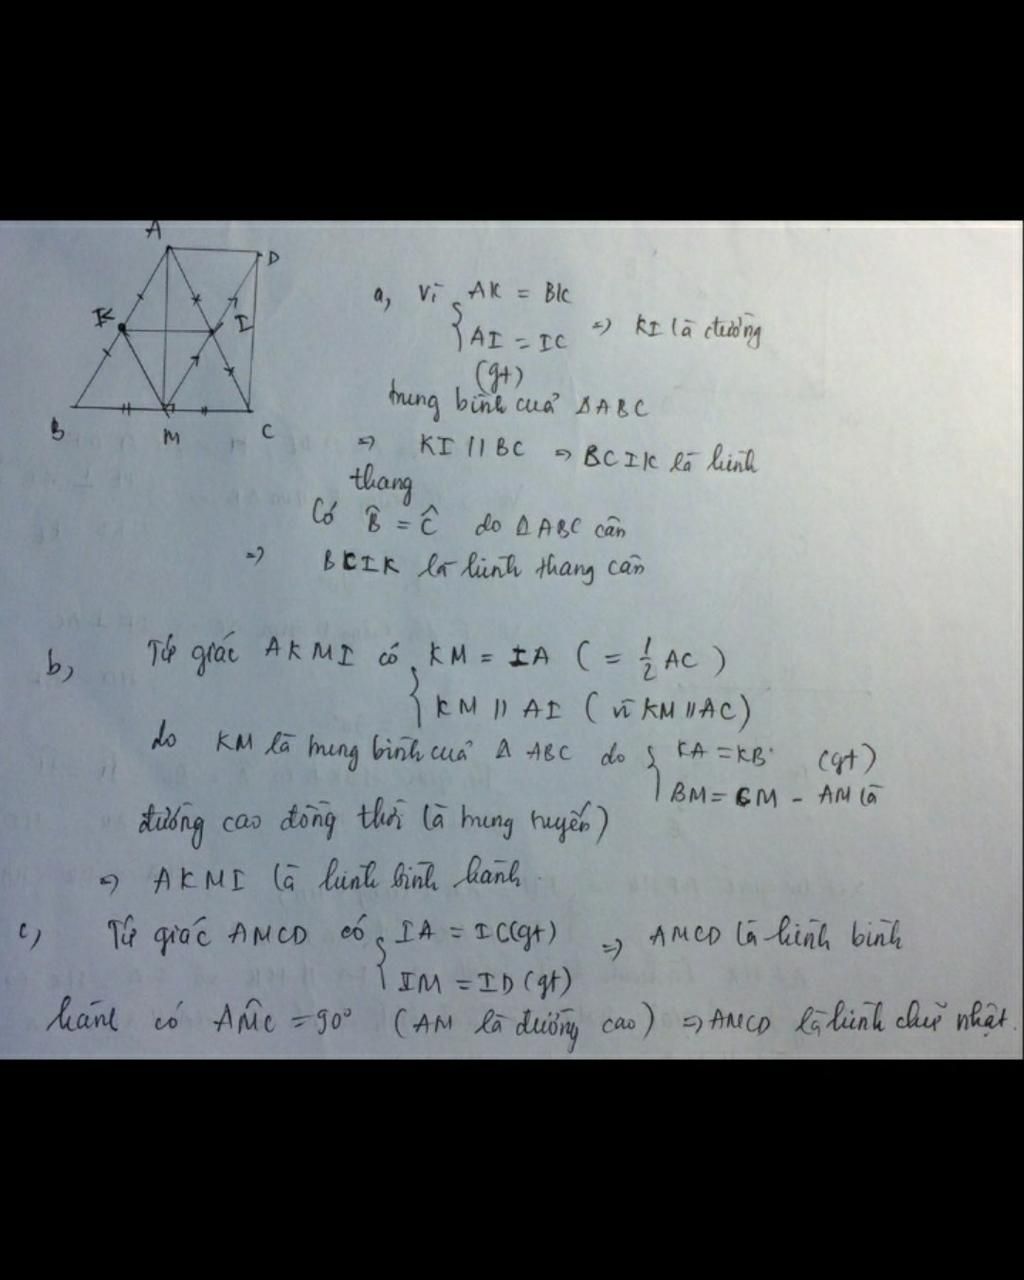 A
D
K
I
B
M
C
a, Vì { AK = BK
AI = IC => KI là đường
(gt)
trung bình của ΔABC
=> KI // BC => BCIK là hình
thang
Có B̂ = Ĉ do ΔABC cân
=> BCIK là hình thang cân
b, Tứ giác AKMI có { KM = IA ( = 1/2 AC )
KM // AI ( vì KM // AC )
do KM là trung bình của Δ ABC do { KA = KB (gt)
BM = CM - AM là
đường cao đồng thời là trung tuyến)
=> AKMI là hình bình hành.
c, Tứ giác AMCD có { IA = IC (gt) => AMCD là hình bình
IM = ID (gt)
hành có AM̂C = 90° ( AM là đường cao ) => AMCD là hình chữ nhật.